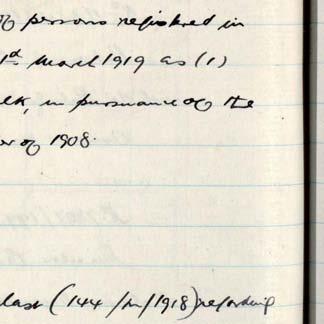 of persons registered in
1st March 1919 as (1)
in pursuance of the
of 1908.
last (144/M/1918) regarding